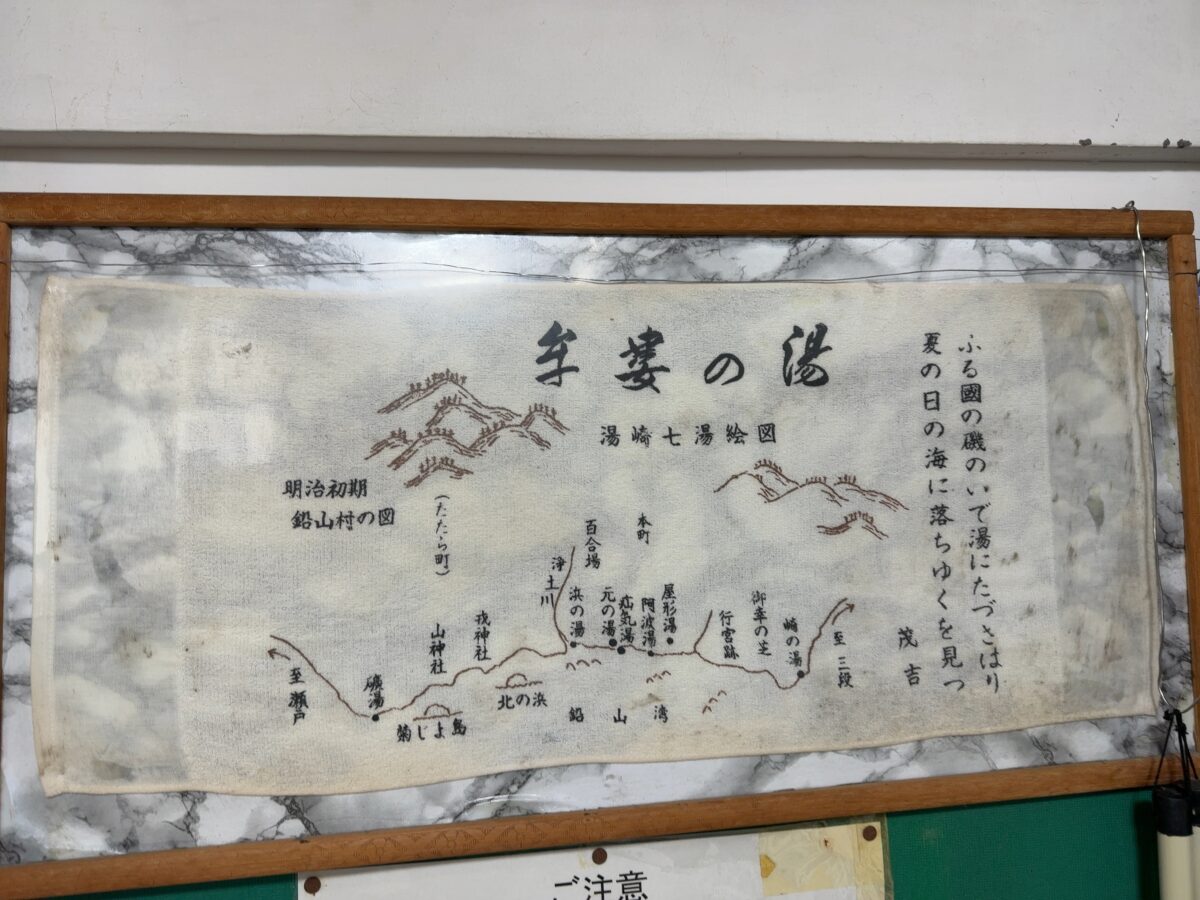 牟婁の湯
湯崎七湯絵図
ふる國の磯のいで湯にたづさはり
夏の日の海に落ちゆくを見つ
茂吉
明治初期
鉛山村の図
(たたら町)
本町
百合場
浄土川
浜の湯
元の湯
疝気湯
阿波湯
屋形湯
行宮跡
御幸の芝
崎の湯
至三段
戎神社
山神社
礦湯
至瀬戸
北の浜
菊じよ島
鉛山湾
ご注意